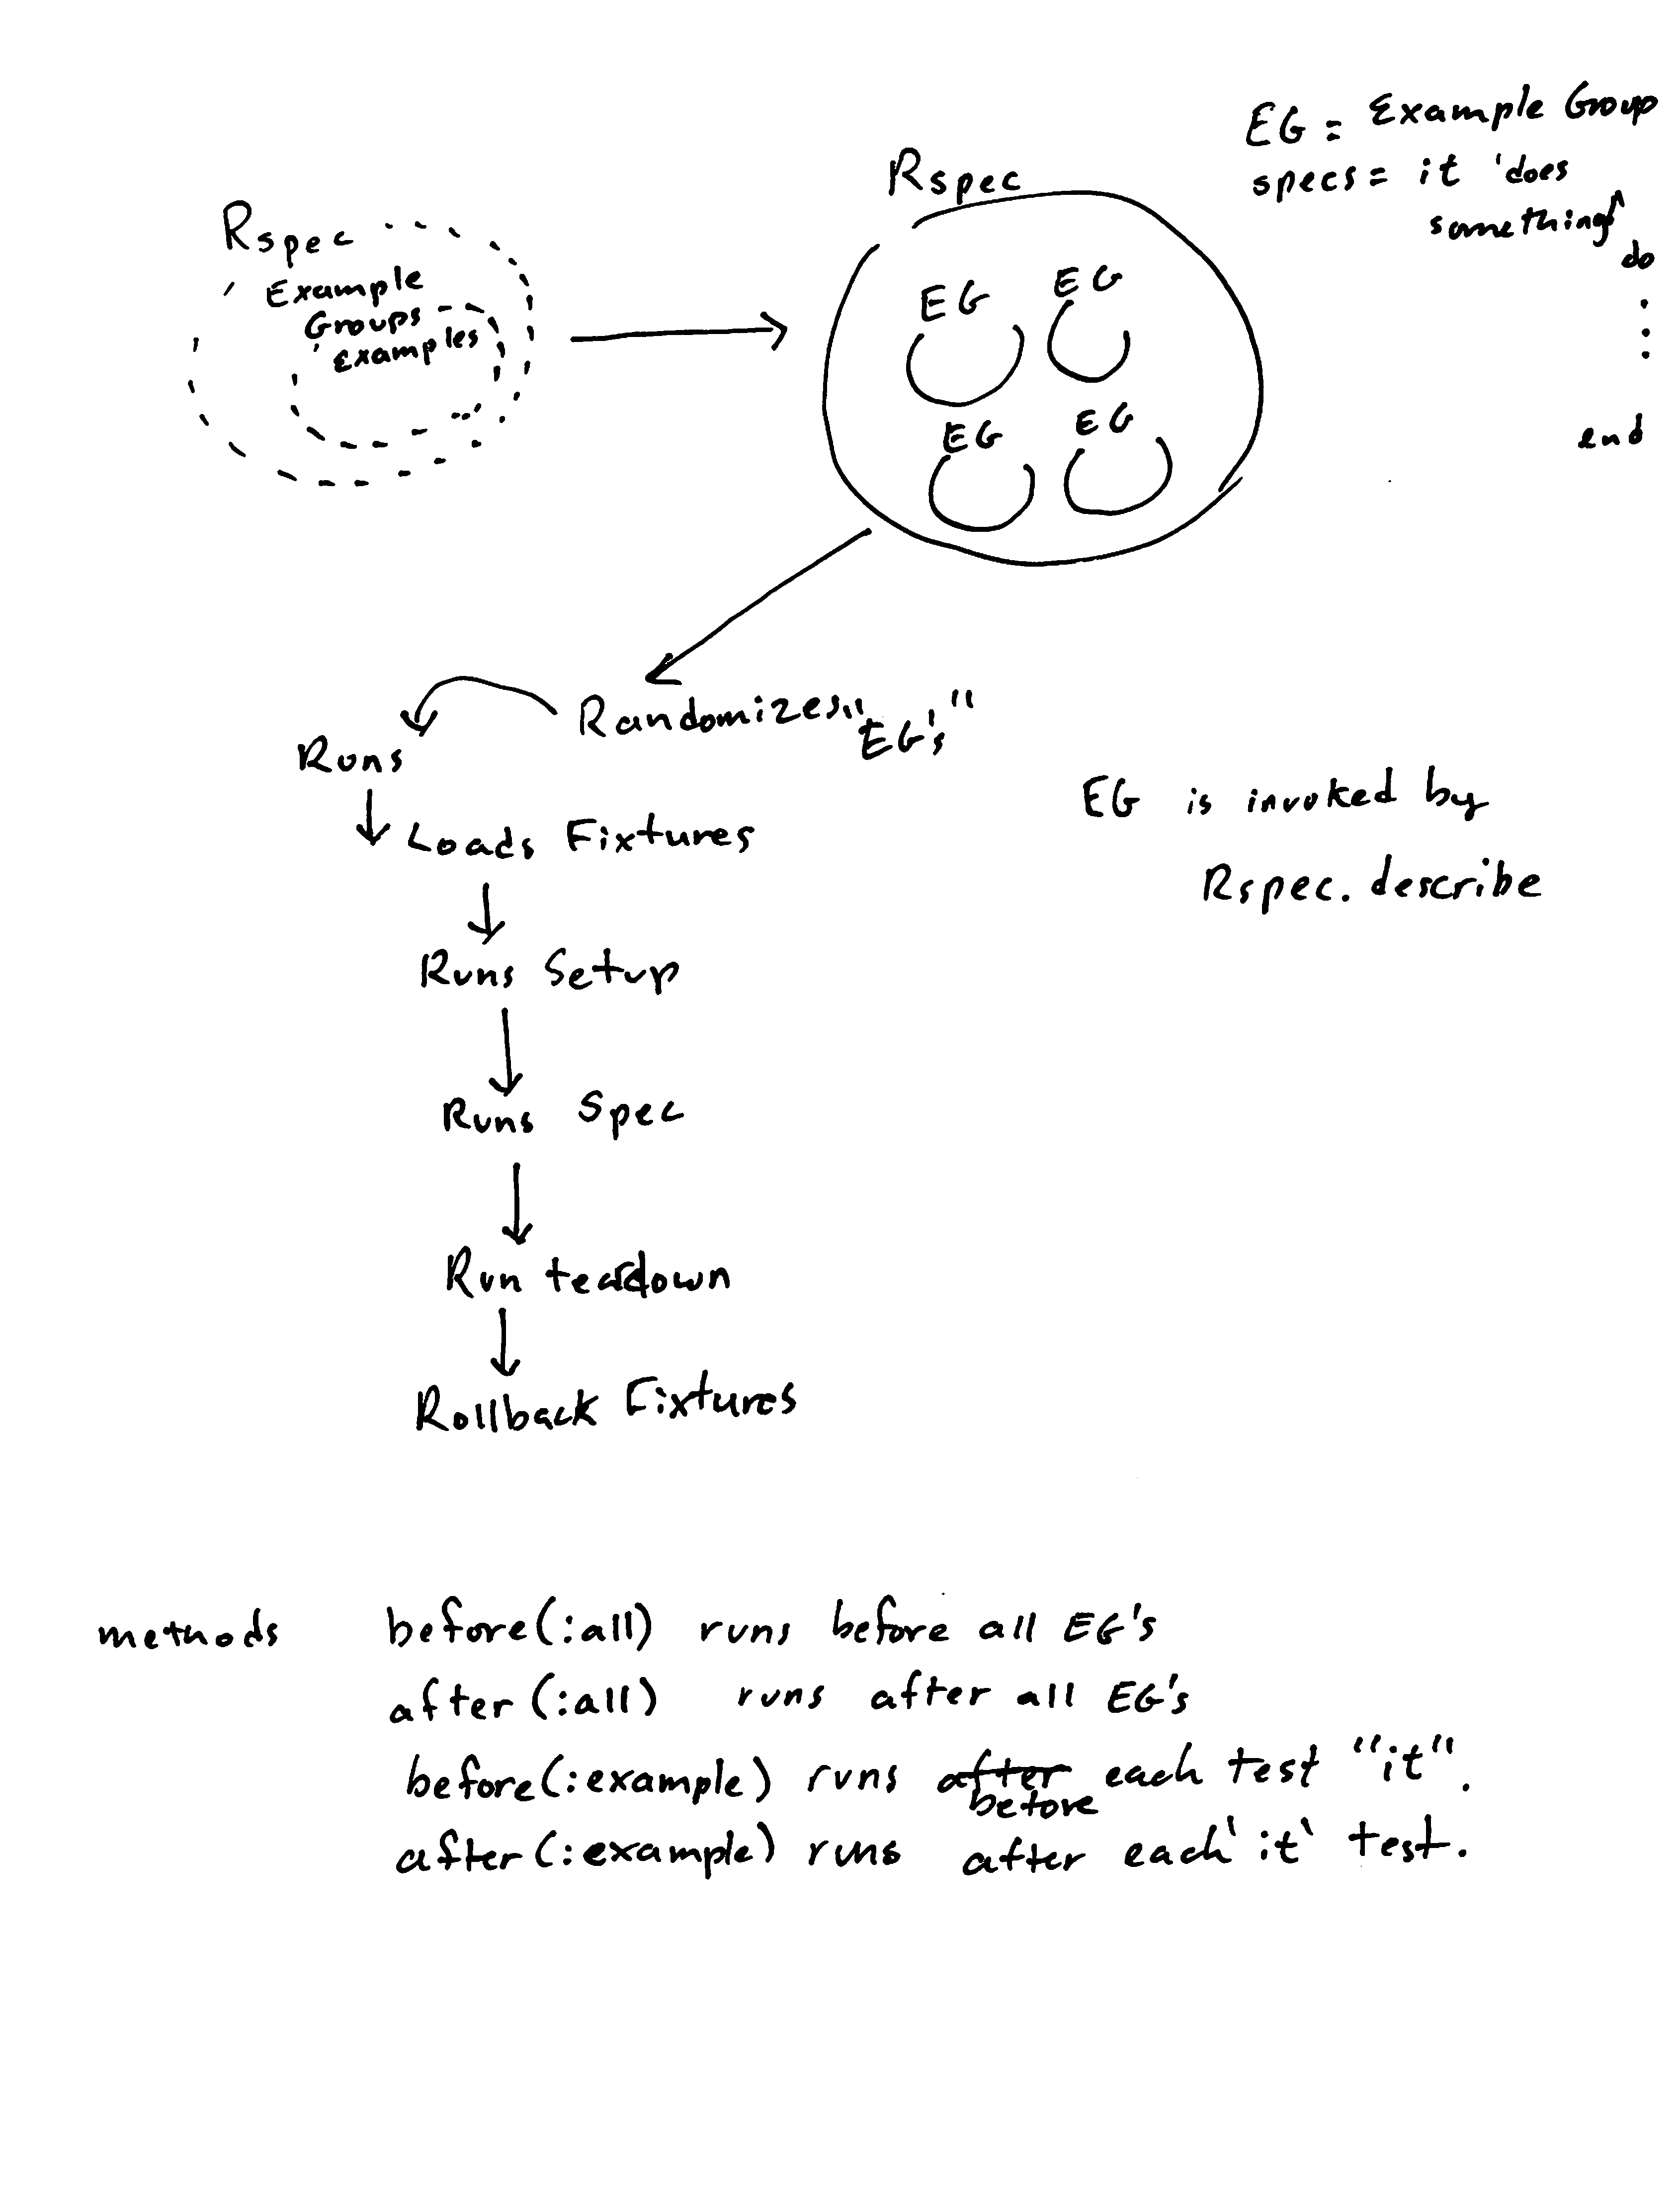 Rspec
Example
Groups
examples
Rspec
EG EG
EG EG
EG = Example Group
specs = it 'does
something'
do
.
.
.
end
Randomizes "EG's"
Runs
Loads Fixtures
Runs Setup
Runs Spec
Run teardown
Rollback Fixtures
EG is invoked by
Rspec. describe
methods before(:all) runs before all EG's
after(:all) runs after all EG's
before(:example) runs after before each test "it".
after(:example) runs after each 'it' test.